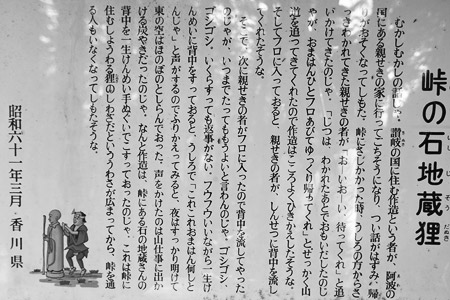 峠の石地蔵狸
むかしむかしの話しじゃ、讃岐の国に住む作造という者が、阿波の
国にある親せきの家に行ってごちそうになり、つい話がはずみ、帰り
がおそくなってしもた。峠にさしかかった時、うしろの方からさ
っきわかれてきた親せきの者が「おーい、おーい、待ってくれ」と追
いかけてきたのじゃ。「じつは、わかれたあとでおもいだしたのじ
ゃが、おまはんひとフロあびてゆっくり帰ってくれ」とせっかく山
道を追ってきてくれたので作造はこころよくひきかえしたそうな。
そしてフロに入っておると、親せきの者が、しんせつに背中を流し
てくれたそうな。
そこで、次に親せきの者がフロに入ったので背中を流してやった
のじゃが、いつまでたってももうよいと言わんのじゃ。ゴシゴシ、
ゴシゴシ、いくらすっても返事がない。フウフウいいながら一生け
んめいに背中をすっておると、うしろで「これこれおまはん何しと
んじゃ」と声がするのでふりかえってみると、夜はすっかり明けて
東の空はほのぼのとしらんでおった。声をかけたのは山仕事に出か
ける炭やきだったのじゃ。なんと作造は、峠にある石の地蔵さんの
背中を一生けんめい手ぬぐいでこすっておったのじゃ。これは峠に
住むしょうわる狸のしわざだというウワさが広まってから、峠を通
る人もいなくなってしもたそうな。
昭和六十一年三月・香川県